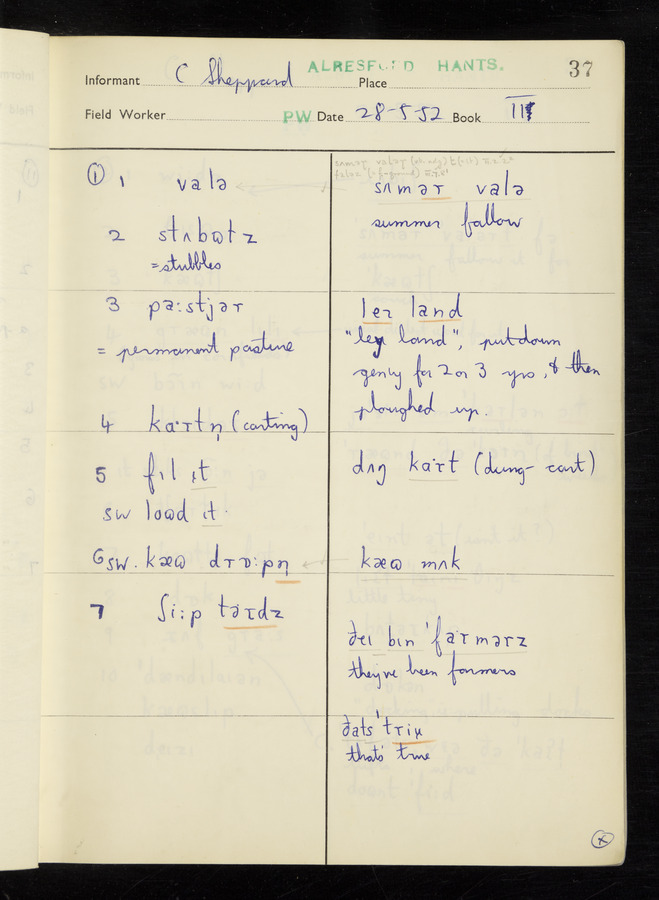 ALRESFORD HANTS. 37
Informant C Sheppard Place
Field Worker PW Date 28-5-52 Book III
① 1 valə
sʌməɾ valə
summer fallow
2 stʌbʊɫz
=stubbles
3 pa:stjəɾ
= permanent pasture
leɪ land
"ley land", put down
for 2 or 3 yrs, & then
ploughed up.
4 ka·ɾtn̩ (carting)
5 fɪl ɪt
sw loʊd ɪt.
dʌŋ ka·ɾt (dung-cart)
6 sw. kæʊ dɾɒ:pn̩
kæʊ mʌk
7 ʃi:p təɾdz
ðeɪ bin 'faɾməɾz
they've been farmers
ðats 'tɾɪu
that's true
x